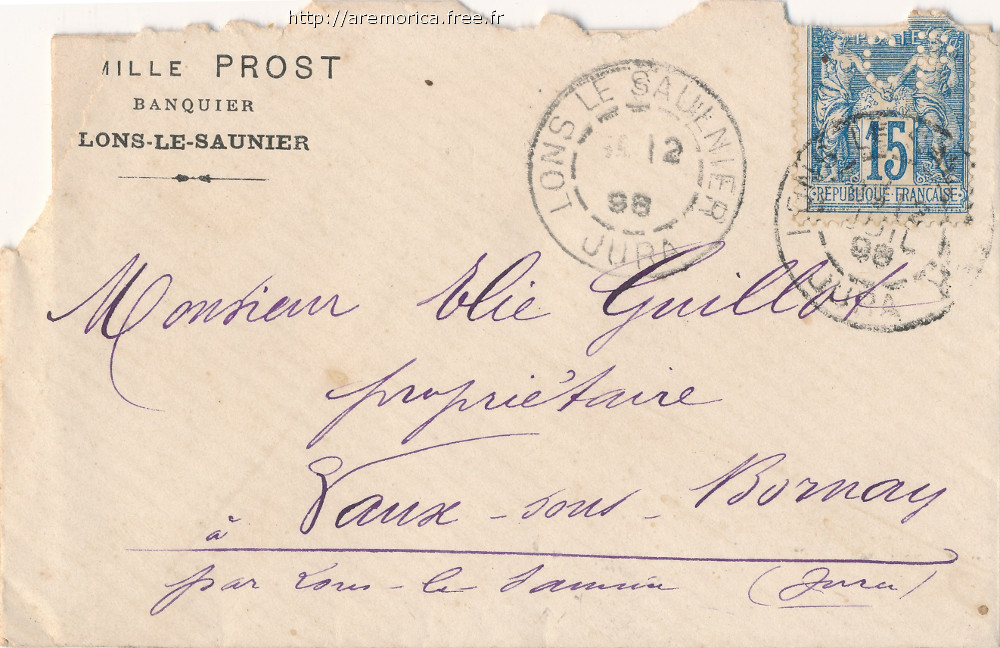 http://aremorica.free.fr
MILLE PROST
BANQUIER
LONS-LE-SAUNIER
LONS LE SAUNIER
12
98
JURA
15
REPUBLIQUE FRANÇAISE
JUIL
98
JURA
Monsieur Elie Guillot
propriétaire
à Vaux-sous-Bornay
par Lons-le-Saunier (Jura)